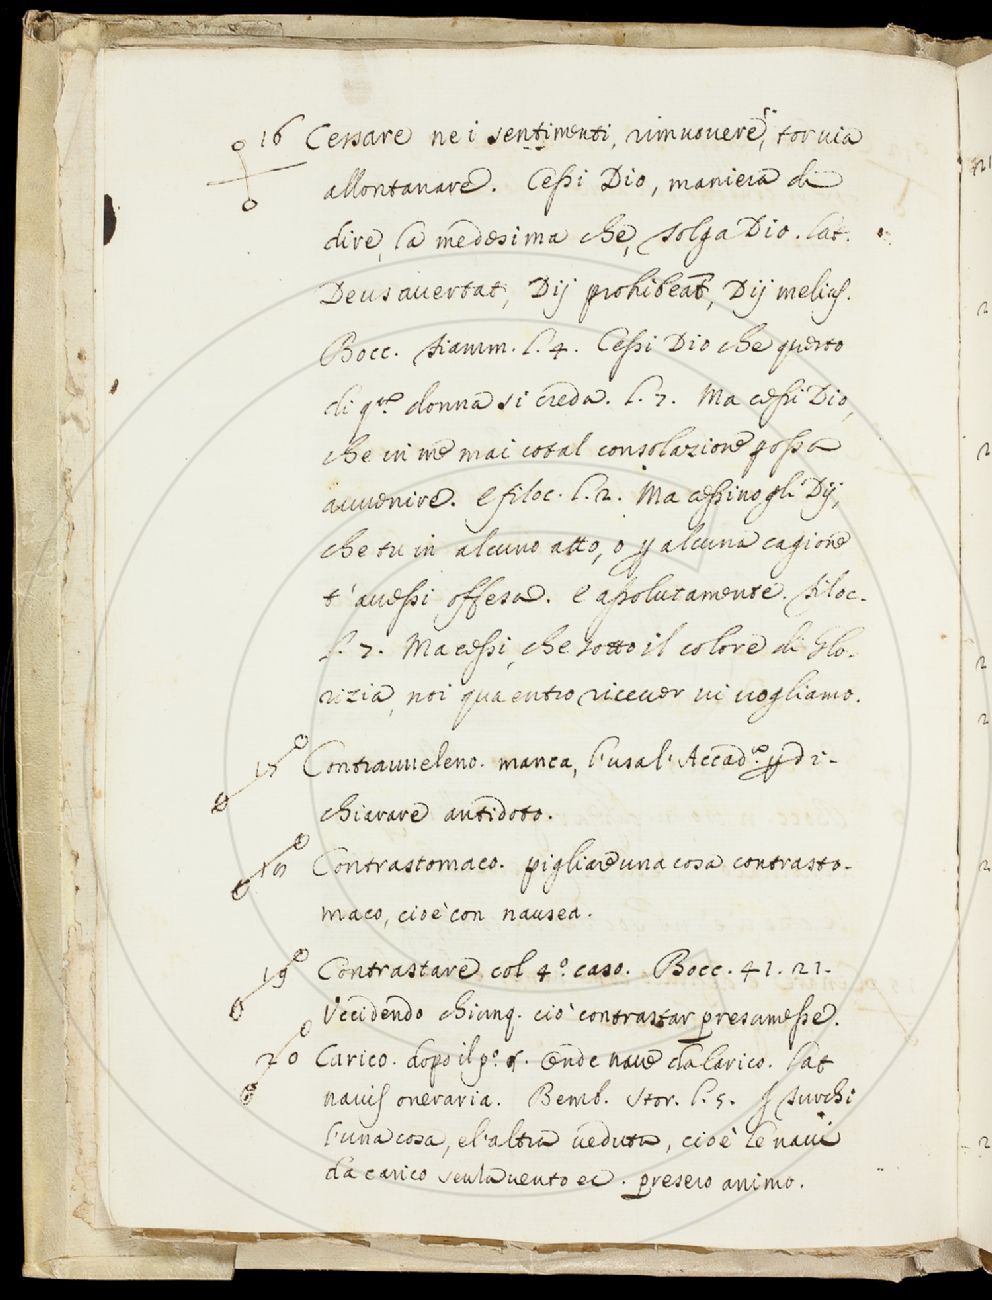 16 Cessare ne i sentimenti, rimuovere, tor uia
allontanare. Cessi Dio, maniera di
dire, la medesima che, tolga Dio. Lat.
Deus auertat, Dij prohibeãt, Dij melius.
Bocc. fiamm. l. 4. Cessi Dio che questo
di q.ta donna si creda. l. 7. Ma cessi Dio,
che in me mai cotal consolazione possa
auuenire. e filoc. l. 2. Ma cessino gli Dij,
che tu in alcuno atto, o p alcuna cagione
t'auessi offesa. e assolutamente. filoc.
l. 7. Ma cessi, che sotto il colore di Glo-
rizia, noi qua entro riceuer ui uogliamo.
17 Contrauueleno. manca, l'usa l'Accad.a p di-
chiarare antidoto.
18 Contrastomaco. pigliare una cosa contrasto-
maco, cioè con nausea.
19 Contrastare col 4.o caso. Bocc. 41. 21.
Vccidendo chiunq. ciò contrastar presumesse.
20 Carico. dopo il p.o §. onde naue da carico. Lat
nauis oneraria. Bemb. Stor. l. 5. I Turchi
l'una cosa, e l'altra ueduta, cioè le naui
da carico senza uento ec. presero animo.